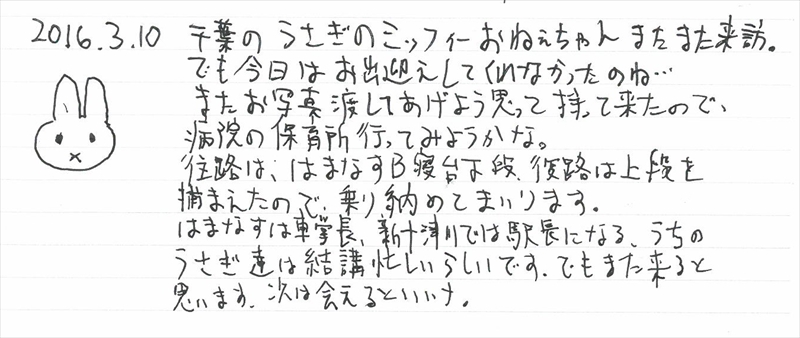 2016.3.10 千葉の うさぎのミッフィーおねぇちゃん またまた来訪。
でも今日は お出迎えしてくれなかったのね…
またお写真 渡してあげよう思って 持って来たので、
病院の保育所行ってみようかな。
往路は、はまなすB寝台下段、復路は上段を
捕まえたので、乗り納めてまいります。
はまなすは車掌長、新十津川では駅長になる、うちの
うさぎ達は結構忙しいらしいです、でもまた来ると
思います、次は会えるといいナ。